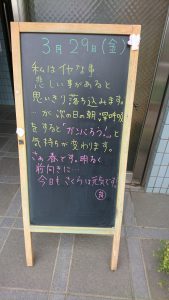 3月29日(金)
私はイヤな事
悲しい事があると
思いきり落ち込みます。
…が次の日の朝深呼吸
をするとガンバろう!と
気持ちが変わります。
さぁ春です。明るく
前向きに…
今日もさくらは元気です!